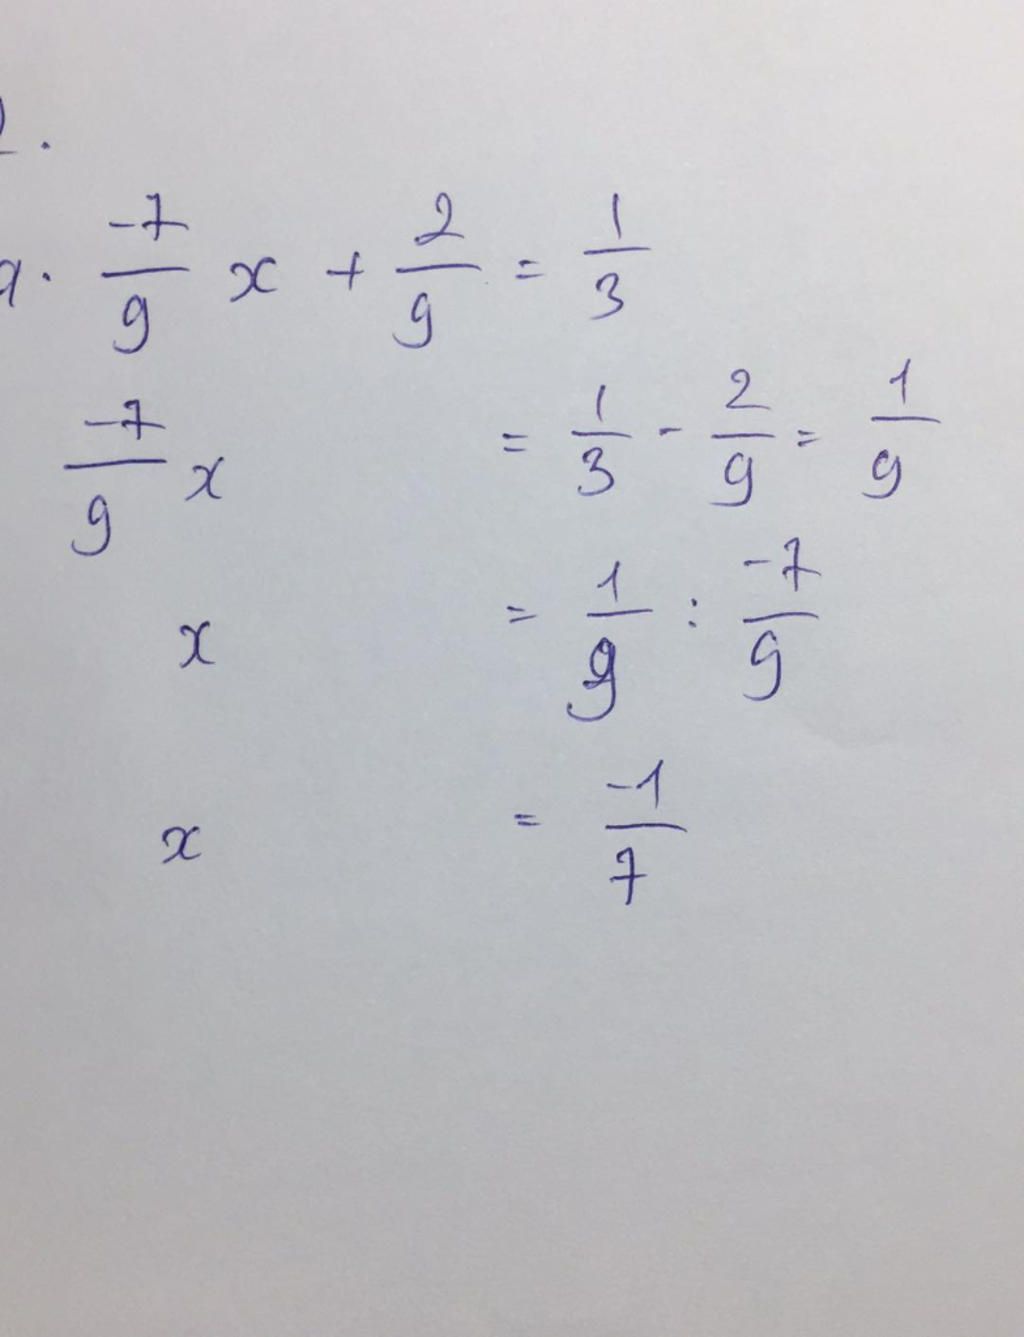 2.
a. -7/9 x + 2/9 = 1/3
-7/9 x = 1/3 - 2/9 = 1/9
x = 1/9 : -7/9
x = -1/7